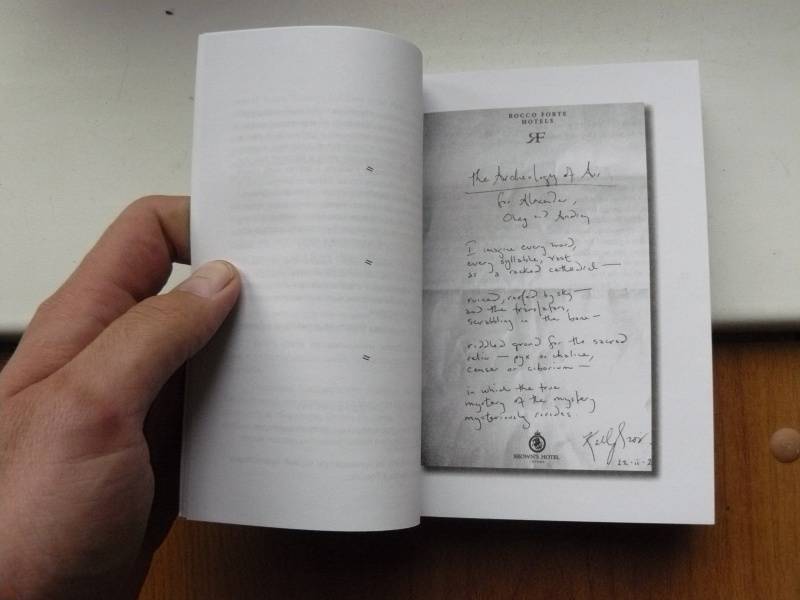 ROCCO FORTE
HOTELS
RF
The Archeology of Air
for Alexander,
Oleg and Andrey
I imagine every word,
every syllable, vast
as a rocked cathedral —
ruined, roofed by sky —
and the translators,
scrabbling in the bone-
riddled ground for the sacred
relic — pyx or chalice,
censer or ciborium —
in which the true
mystery of the mystery
mysteriously resides
BROWN'S HOTEL
LONDON